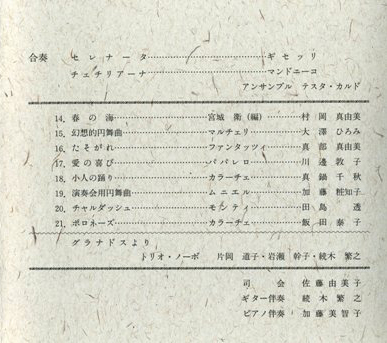 合奏 セレナータ……………ギセッリ
チェチリアーナ……………マンドニーコ
アンサンブル テスタ・カルド
14. 春の海……………宮城 衛(編)……………村岡 真由美
15. 幻想的円舞曲……………マルチェリ……………大澤 ひろみ
16. たそがれ……………ファンタッツィ……………真部 真由美
17. 愛の喜び……………パパレロ……………川邊 敦子
18. 小人の踊り……………カラーチェ……………真鍋 千秋
19. 演奏会用円舞曲……………ムニエル……………加藤 粧知子
20. チャルダッシュ……………モンティ……………田島 透
21. ポロネーズ……………カラーチェ……………飯田 泰子
グラナドスより
トリオ・ノーボ 片岡 道子・岩瀬 幹子・続木 繁之
司会 佐藤 由美子
ギター伴奏 続木 繁之
ピアノ伴奏 加藤 美智子